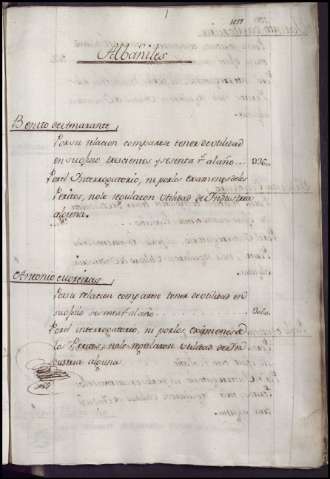 1
Albañiles
Benito de Amarante
Por su relacion comparece tener de utilidad
en su ofizio trescientos y sesenta r.s al año... 0360.
Por el Interrogatorio, ni por los examenes de los
Peritos, no le regularon Utilidad de Industria
alguna.
Antonio
Por su relacion comparece tener de utilidad en
su ofizio al año
Por el interrogatorio, ni por los examenes de
los Peritos, no le regularon utilidad de In
dustria alguna